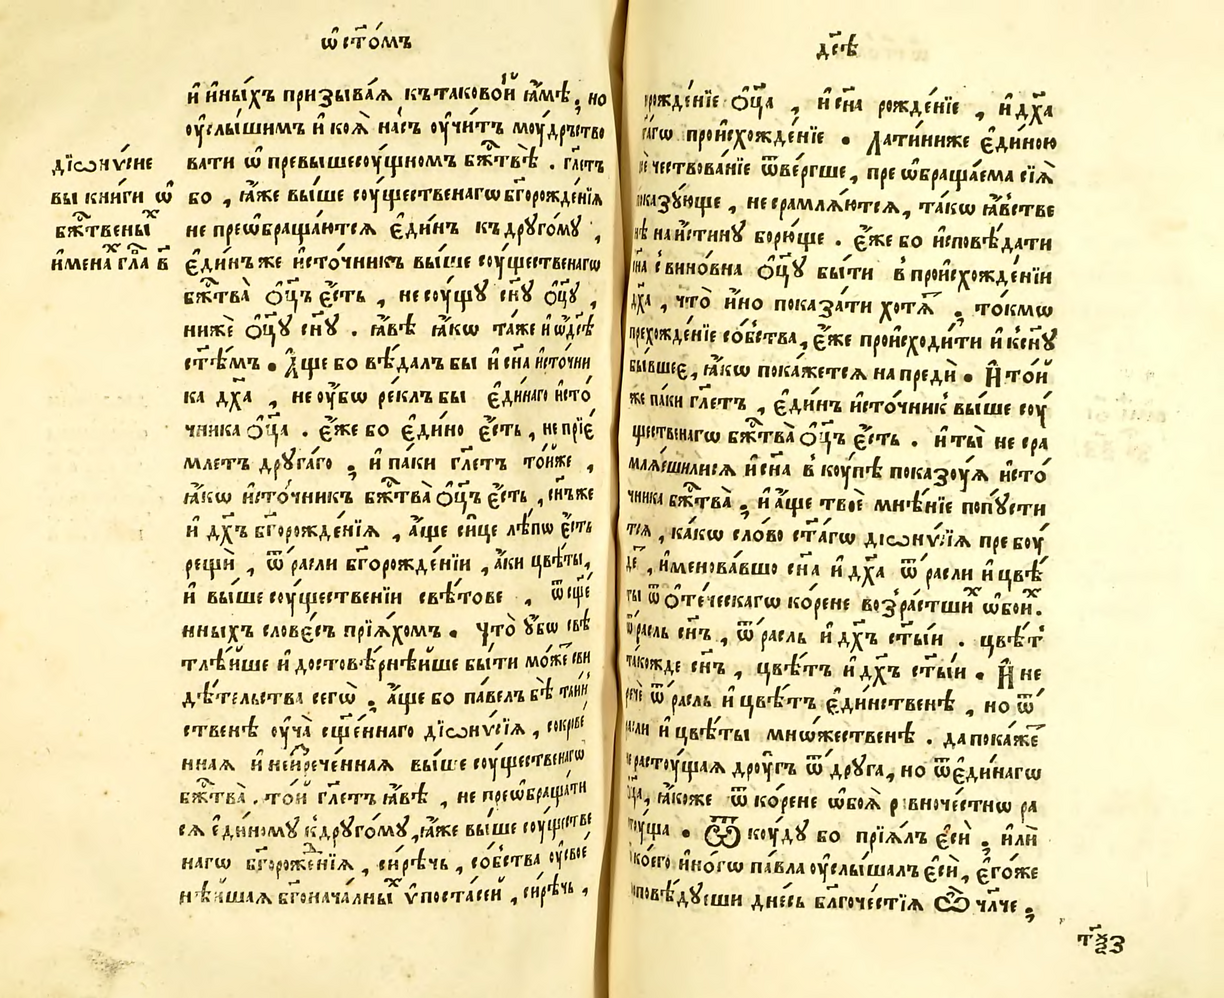 ѡ҆ ст҃о́мъ
и҆ и҆ны́хъ призыва́ѧ къ таково́й ꙗ҆́мѣ, но
оу҆слы́шимъ и҆ коѧ̀ на́съ оу҆чи́тъ моу́дрьство
вати ѡ҆ превышесоу́щномъ бж҃твѣ̀ . гл҃етъ
бо , ꙗ҆́же выше соу́щественагѡ бг҃орожде́нїѧ
не преѡбраща́ютсѧ є҆ди́нъ къ дрꙋго́мꙋ ,
є҆ди́нъ же и҆сто́чникъ вы́ше соу́щественагѡ
бж҃твà ѻ҆ц҃ъ є҆́сть , не соу́щꙋ сн҃ꙋ ѻ҆ц҃ꙋ ,
нижѐ ѻ҆ц҃ꙋ сн҃ꙋ . ꙗ҆́вѣ ꙗ҆́кѡ та́же и҆ ѡ҆ дс҃ѣ
ст҃ѣ́мъ . А҆́ще бо вѣ́далъ бы и҆ сн҃а и҆сто́чни
ка дх҃а , не оу҆́бѡ ре́клъ бы є҆ди́наго и҆сто́
чника ѻ҆ц҃а . є҆́же бо є҆ди́но є҆́сть , не прїе́
млетъ дрꙋга́го , и҆ па́ки гл҃етъ то́йже ,
ꙗ҆́кѡ и҆сто́чникъ бж҃твà ѻ҆ц҃ъ є҆́сть , сн҃ъ же
и҆ дх҃ъ бг҃орожде́нїѧ , а҆́ще си́це лѣ́пѡ є҆́сть
рещѝ , ѿра́сли бг҃орожде́нїи , а҆́ки цвѣ́ты,
и҆ выше соу́щественїи свѣ́тове , ѿ сщ҃е
нныхъ слове́съ прїѧ́хомъ . Что̀ ᲂу҆́бѡ свѣ
тлѣ́йше и҆ достовѣ́рнѣйше бы́ти мо́жетъ сви
дѣ́тельства сегѡ̀ , а҆́ще бо па́велъ бѣ̀ та́ин
ственѣ оу҆ча̀ сщ҃е́ннаго дїѡнѵ́сїѧ , сокрове́
ннаѧ и҆ неи҆зрече́ннаѧ выше соу́щественагѡ
бж҃твà . то́й гл҃етъ ꙗ҆́вѣ , не преѡбраща́ти
сѧ є҆ди́номꙋ к дрꙋго́мꙋ , ꙗ҆́же выше соу́ществе
нагѡ бг҃орожде́нїѧ , си́рѣчь , со́бства оу҆свое
нѣ́йшаѧ бг҃онача́лныⷯ ѵ҆поста́сей , си́рѣчь ,
дїѡнѵ́сїе
вы кни́ги ѡ҆
бж҃твеныⷯ
и҆менаⷯ гл҃а в҃
дс҃ѣ
рожде́нїе ѻ҆ц҃а , и҆ сн҃а рожде́нїе , и҆ дх҃а
ст҃а́гѡ происхожде́нїе . Лати́ни же є҆ди́ною
не чествова́нїе ѿве́ргше , преѡбраща́ема сїѧ̀
показꙋ́юще , не срамлѧ́ютсѧ , та́кѡ ꙗ҆́вствен
нѣ на и҆́стинꙋ борю́ще . є҆́же бо и҆сповѣ́дати
сн҃а с вино́вна ѻ҆ц҃ꙋ бы́ти в происхожде́нїи
дх҃а , что̀ и҆́но показа́ти хотѧ́тъ , то́кмѡ
прехожде́нїе со́бства, є҆́же происходи́ти и҆ к сн҃ꙋ
бы́вшее, ꙗ҆́кѡ пока́жетсѧ на предѝ . И҆ то́й
же па́ки гл҃етъ , є҆ди́нъ и҆сто́чникъ вы́ше соу́
щественагѡ бж҃твà ѻ҆ц҃ъ є҆́сть . и҆ ты̀ не сра
млѧ́ешилисѧ и҆ сн҃а в коу́пѣ показоу́ѧ и҆сто́
чника бж҃твà , и҆ а҆́ще твоѐ мнѣ́нїе попꙋ́сти
тсѧ , ка́кѡ сло́во ст҃а́гѡ дїѡнѵ́сїѧ пребоу́
детъ , и҆менова́вшо сн҃а и҆ дх҃а ѿра́сли и҆ цвѣ́
ты ѿ ѻ҆те́ческагѡ ко́рене возра́стшиⷯ ѡ҆бои́ⷯ.
ѿ́расль сн҃ъ , ѿ́расль и҆ дх҃ъ ст҃ы́и . цвѣ́тъ
та́кожде сн҃ъ , цвѣ́тъ и҆ дх҃ъ ст҃ы́и . И҆ не
речѐ ѿ́расль и҆ цвѣ́тъ є҆ди́нственѣ , но ѿ́
расли и҆ цвѣ́ты мнѡ́жественѣ . да пока́же
не расто́ущаѧ дроу́гъ ѿ дрꙋга, но ѿ є҆ди́нагѡ
ѻ҆ц҃а, ꙗ҆́коже ѿ ко́рене ѡ҆боѧ̀ равноче́стнѡ ра
сто́уща . Ѿ коу́дꙋ бо прїѧ́лъ є҆сѝ , и҆лѝ
ѿ ко́его и҆но́гѡ па́вла оу҆слы́шалъ є҆сѝ , є҆го́же
проповѣ́дꙋеши дне́сь бл҃гоче́стїѧ Ѽ чл҃че ,
тѯ҃з